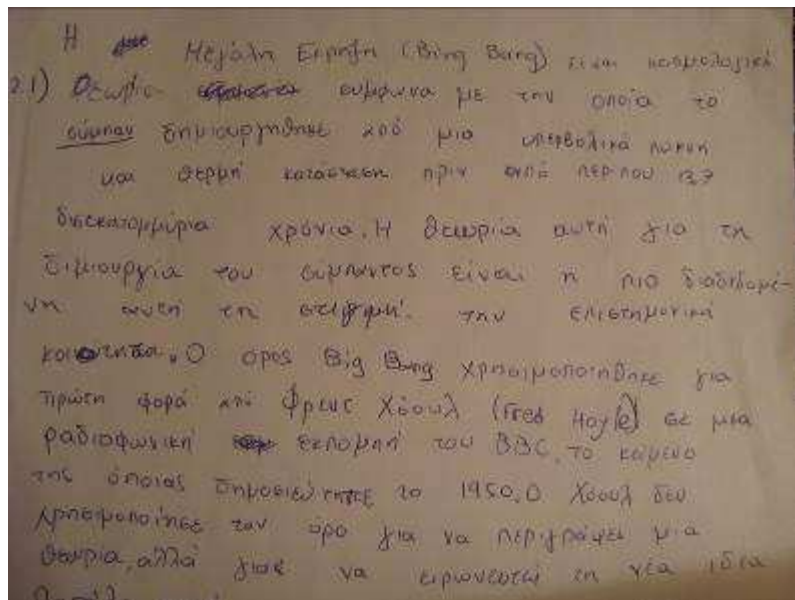 Η Μεγάλη Εκρηξη (Bing Bang) είναι κοσμολογική
2.1) Θεωρία σύμφωνα με την οποία το
σύμπαν δημιουργήθηκε από μια υπερβολικά πυκνή
και θερμή κατάσταση πριν από περίπου 13,7
δισεκατομμύρια χρόνια. Η θεωρία αυτή για τη
διμιουργία του σύμπαντος είναι η πιο διαδεδομέ-
νη αυτή τη στιγμή. την επιστημονική
κοινότητα. Ο όρος Big Bang χρησιμοποιήθηκε για
πρώτη φορά από Φρεντ Χόουλ (Fred Hoyle) σε μια
ραδιοφωνική εκπομπή του BBC, το κείμενο
της οποίας δημοσιεύτηκε το 1950. Ο Χόουλ δεν
χρησιμοποίησε τον όρο για να περιγράψει μια
θεωρία, αλλά για να ειρωνευτεί τη νέα ιδέα